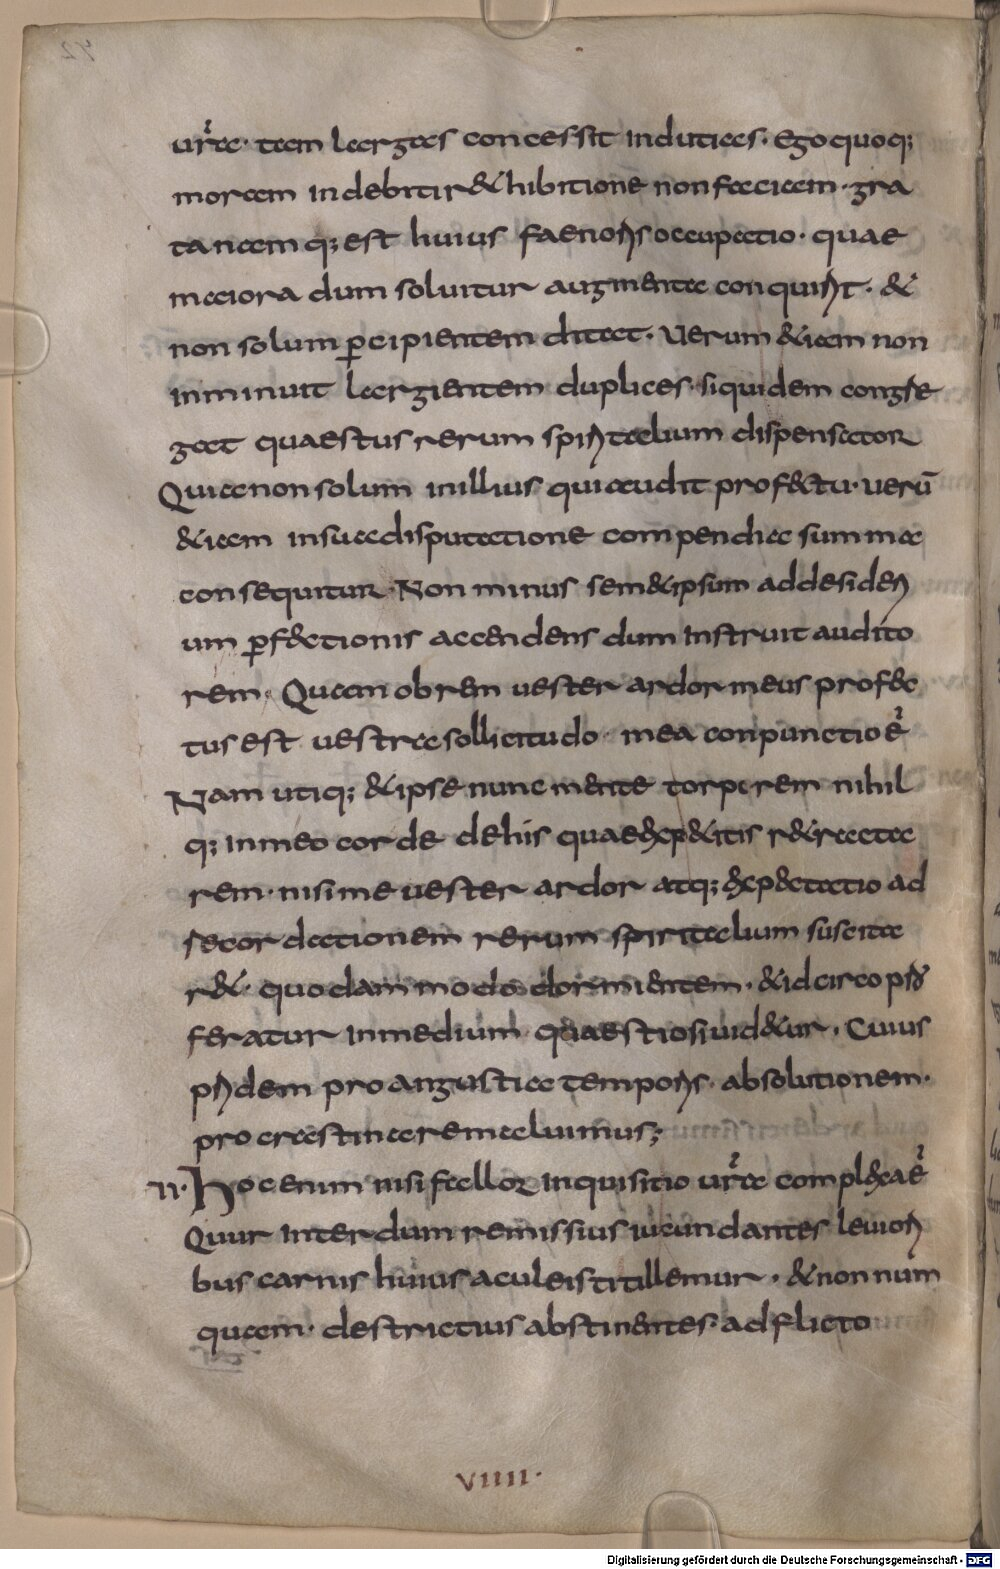 urа̄. tam largas concessit indutias. Ego quoq;
moram indebiti r&hibitione non faciam. gra
ta namq; est huius faenoris occupatio. quae
maiora dum soluitur augmenta conquirit. &
non solum p̄cipientem ditat. Uerum &iam non
inminuit largientem duplices. siquidem congre
gat quaestus rerum spiritalium dispensator
Quia non solum in illius qui audit prof&tu. uerū
&iam in sua disputatione compendia summa
consequitur. Non minus sem&ipsum ad desideri
um p̄fectionis accendens dum instruit audito
rem. Quam obrem uester ardor meus profec
tus est uestra sollicitudo. mea conpunctio ē
Nam utiq; & ipse nunc mente torperem nihil
q; in meo corde de his quae exp&itis r&racta
rem. nisi me uester ardor atq; expectatio ad
recordationem rerum spiritalium suscita
r&. quodammodo dormientem. & idcirco pro
feratur in medium quaestio si uid&ur. Cuius
pridem pro angustia temporis. absolutionem.
procrastinare maluimus;
II. Hoc enim nisi fallor inquisitio urā complexa ē
Quur interdum remissius iucundantes leuiori
bus carnis huius aculeis titillemur. & non num
quam. destrictius abstinentes. adflicto
VIIII.
Digitalisierung gefördert durch die Deutsche Forschungsgemeinschaft - DFG